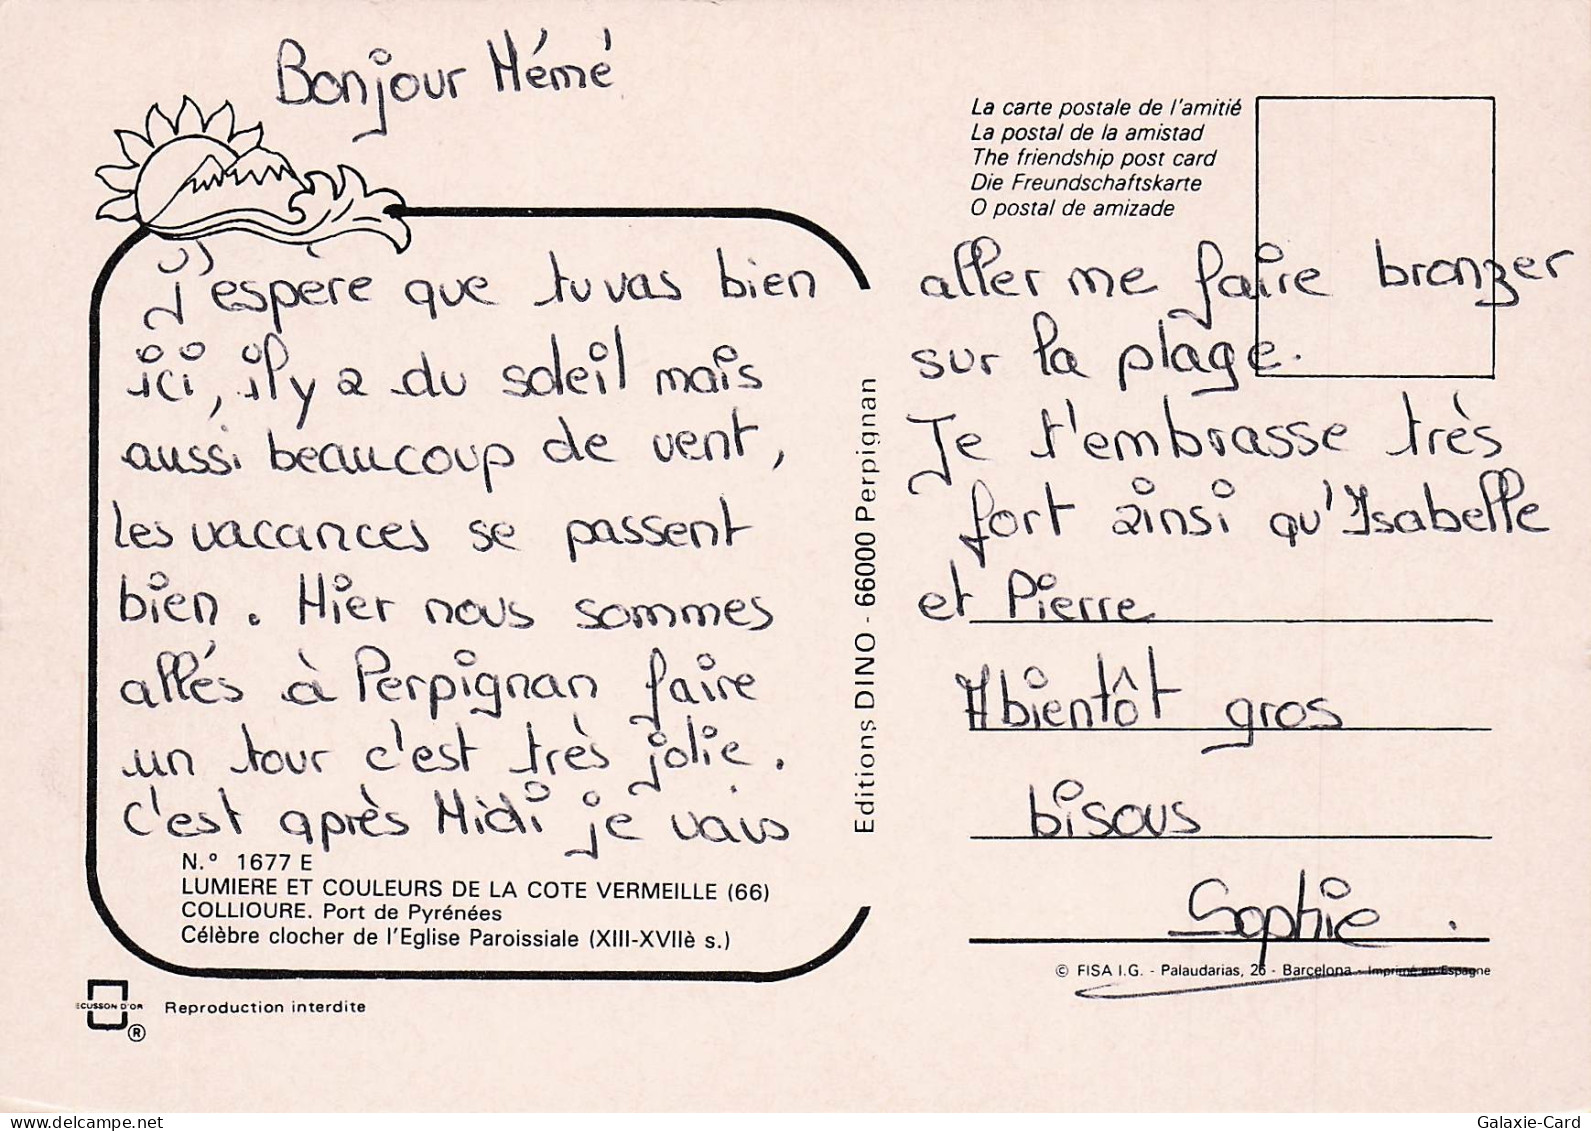 Bonjour Mémé
J'espère que tu vas bien
ici, il y a du soleil mais
aussi beaucoup de vent,
les vacances se passent
bien. Hier nous sommes
allés à Perpignan faire
un tour c'est très jolie.
C'est après Midi je vais
N.º 1677 E
LUMIERE ET COULEURS DE LA COTE VERMEILLE (66)
COLLIOURE. Port de Pyrénées
Célèbre clocher de l'Eglise Paroissiale (XIII-XVIIè s.)
ECUSSON D'OR
®
Reproduction interdite
Editions DINO - 66000 Perpignan
La carte postale de l'amitié
La postal de la amistad
The friendship post card
Die Freundschaftskarte
O postal de amizade
aller me faire bronzer
sur la plage.
Je t'embrasse très
fort ainsi qu'Isabelle
et Pierre
A bientôt gros
bisous
Sophie.
© FISA I.G. - Palaudarias, 26 - Barcelona - Imprimé en Espagne
delcampe.net
Galaxie-Card